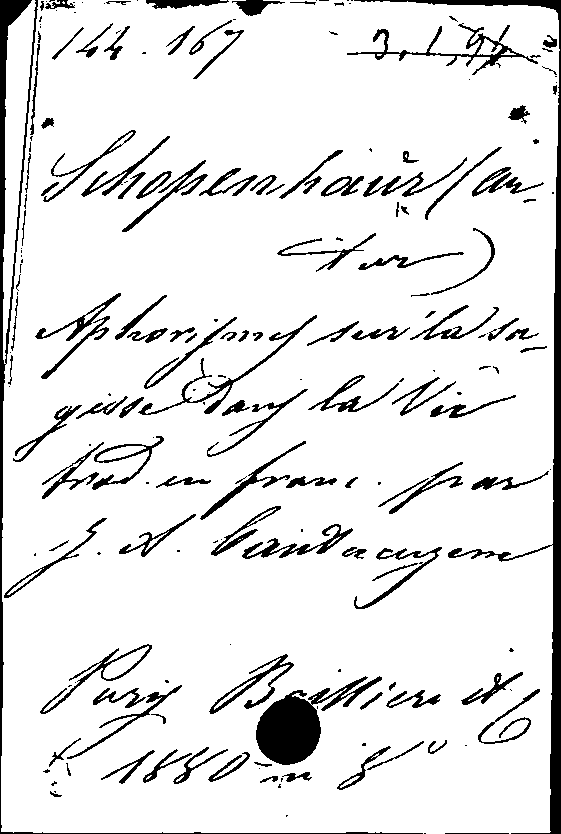 144.167 3.1.94
Schopenhauer (ar-
tur)
Aphorismes sur la sa-
gesse dans la Vie
trad. en franc. par
J. A. Cantacuzene
Paris Baillière et C
1880 in 8°